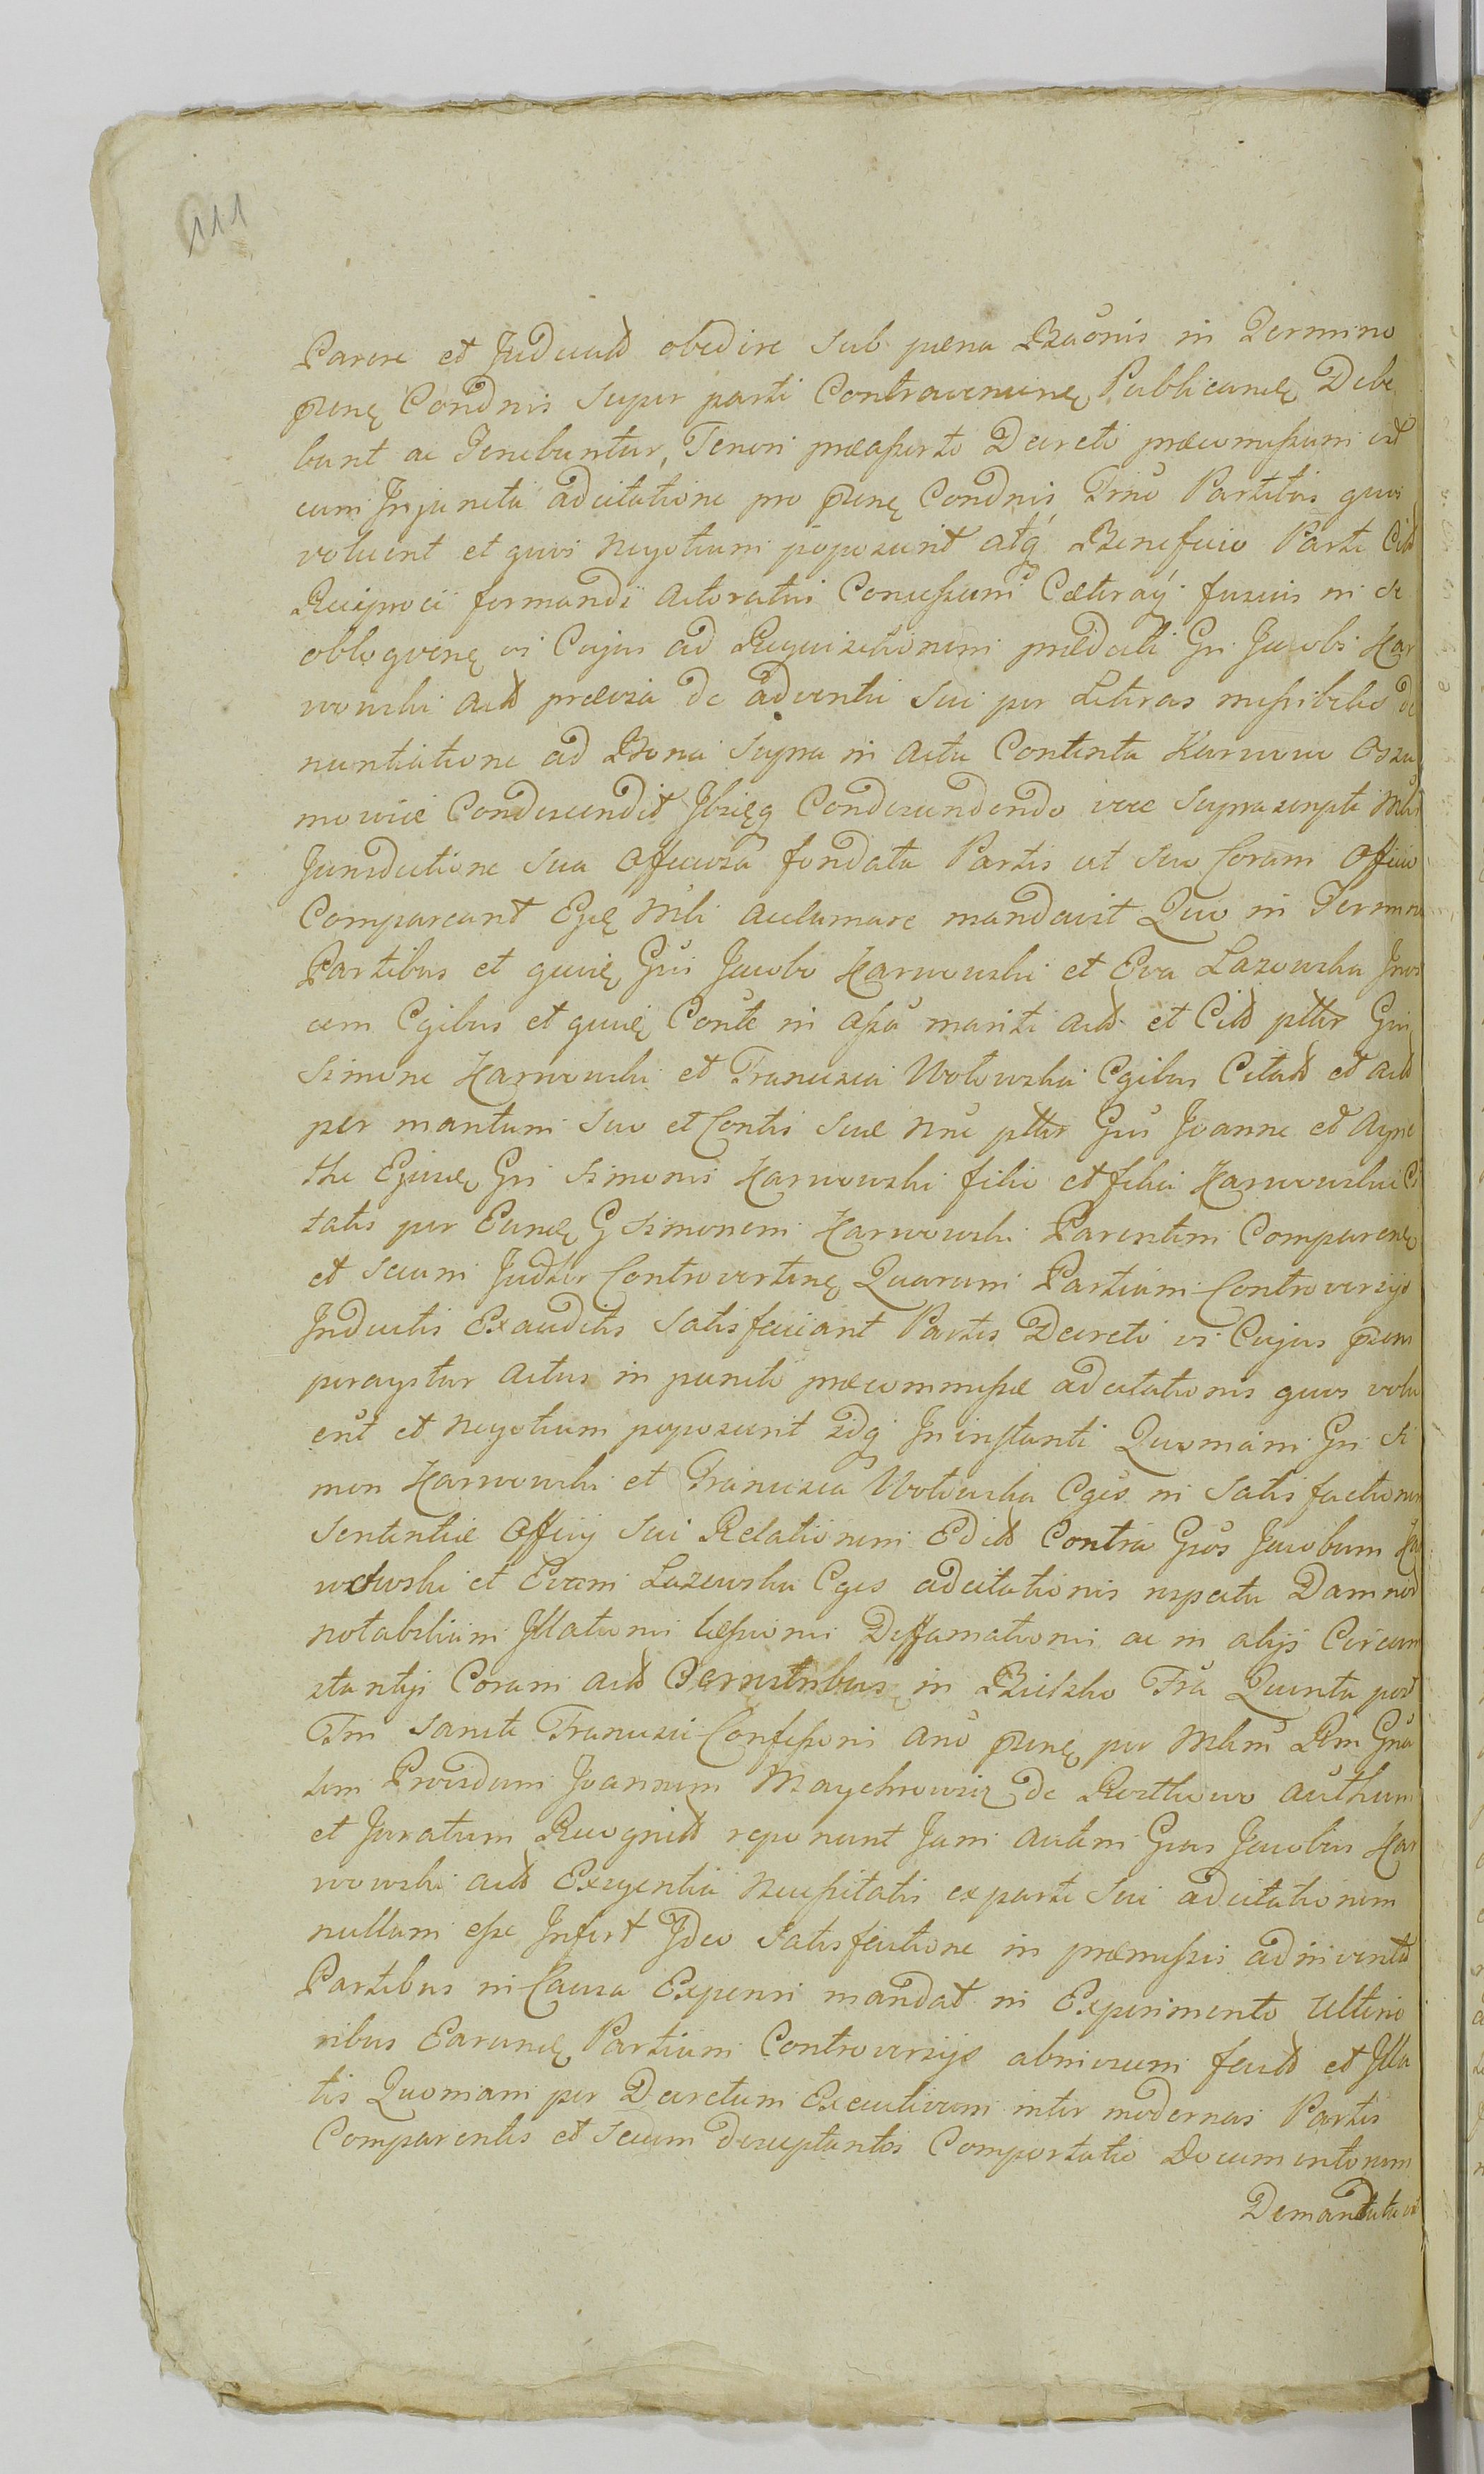 111
Parere et Judicatt obedire sub pæna Baõnis in Termino
præns Condnis super parti Contravenienę Publicandę Debe
bunt ac Tenebuntur, Tenori præasserto Decreto præcomissum est
cum Injuncta adcitatione pro prænę Condnis Trnõ Partibus quos
voluerit et quovi Negotium poposcerit atq Beneficio Parti Citt
Reciproci formandi Actoratus Concessum Cæteraq fusius in se
obloquenę vi Cujus ad Requisitionem prædicti Gsi Jacobi Kar
wowski Actt prævia de adventu sui per Literas missibiles de
nuntiatione ad Bona supra in Actu Contenta Karwowo
mowice Condescendit Ibidęq Condescendendo vice suprascripti Mlis
Jurisdictione sua Officiosa fondata Partes ut suo Coram Officio
Compareant Epę Mlĩ acclamare mandavit Quo in Termino
Partibus et quidę Gsis Jacobo Karwowski et Eva Lazowska Invi
cem Cgibus et quidę Conte in assã mariti Actt et Citt pttr Gsis
Simone Karwowski et Francisca Wotowska Cgibus Citatt et Actt
per maritum suo et Contis suæ nne pttr Gsis Joanne et Agne
the Ejusdę Gsi Simonis Karwowski filio et filia Karwowskie Ci
tatis per Eundę G Simonem Karwowski Parentem Comparenę
et secum Juditer Controvertenę Quarum Partium Controversijs
Inductis Exauditis satisfaciant Partes Decreto vi Cujus præns
peragitur Actus in puncto præcommissæ adcitationis quos volu
erit et Negotium poposcerit Idq Ininstanti Quoniam Gsi Si
mon Karwowski et Francisca Wotowska Cges in satisfactionem
sententiæ Officij sui Relationem Editt Contra Gsos Jacobum Kar
wowski et Evam Lazowska Cges adcitationis respectu Damnor
notabilium Illationis læsionis Deffamationis ac in alijs Circum
stantijs Coram Actt Castrensibus in Bielsko Fria Quinta post
Ftm Sancti Francisci Confessoris Ano prænę per Mlem Rgni Gna
lem Providum Joannem Maychrowicz de Rostkowo Authum
et Juratum Recognitt reponunt Jam autem Gsus Jacobus Kar
wowski Actt Exigentia Necessitatis ex parte sui adcitationem
nullam esse Infert Ideo satisfactione in præmissis adinventa
Partibus in Causa Experiri mandat in Experimento Ulterio
ribus Earundę Partium Controversijs abinvicem factt et Illa
tis Quoniam per Decretum Executivum inter modernas Partes
Comparentes et secum Disceptantes Comportatio Documentorum
Demandata est